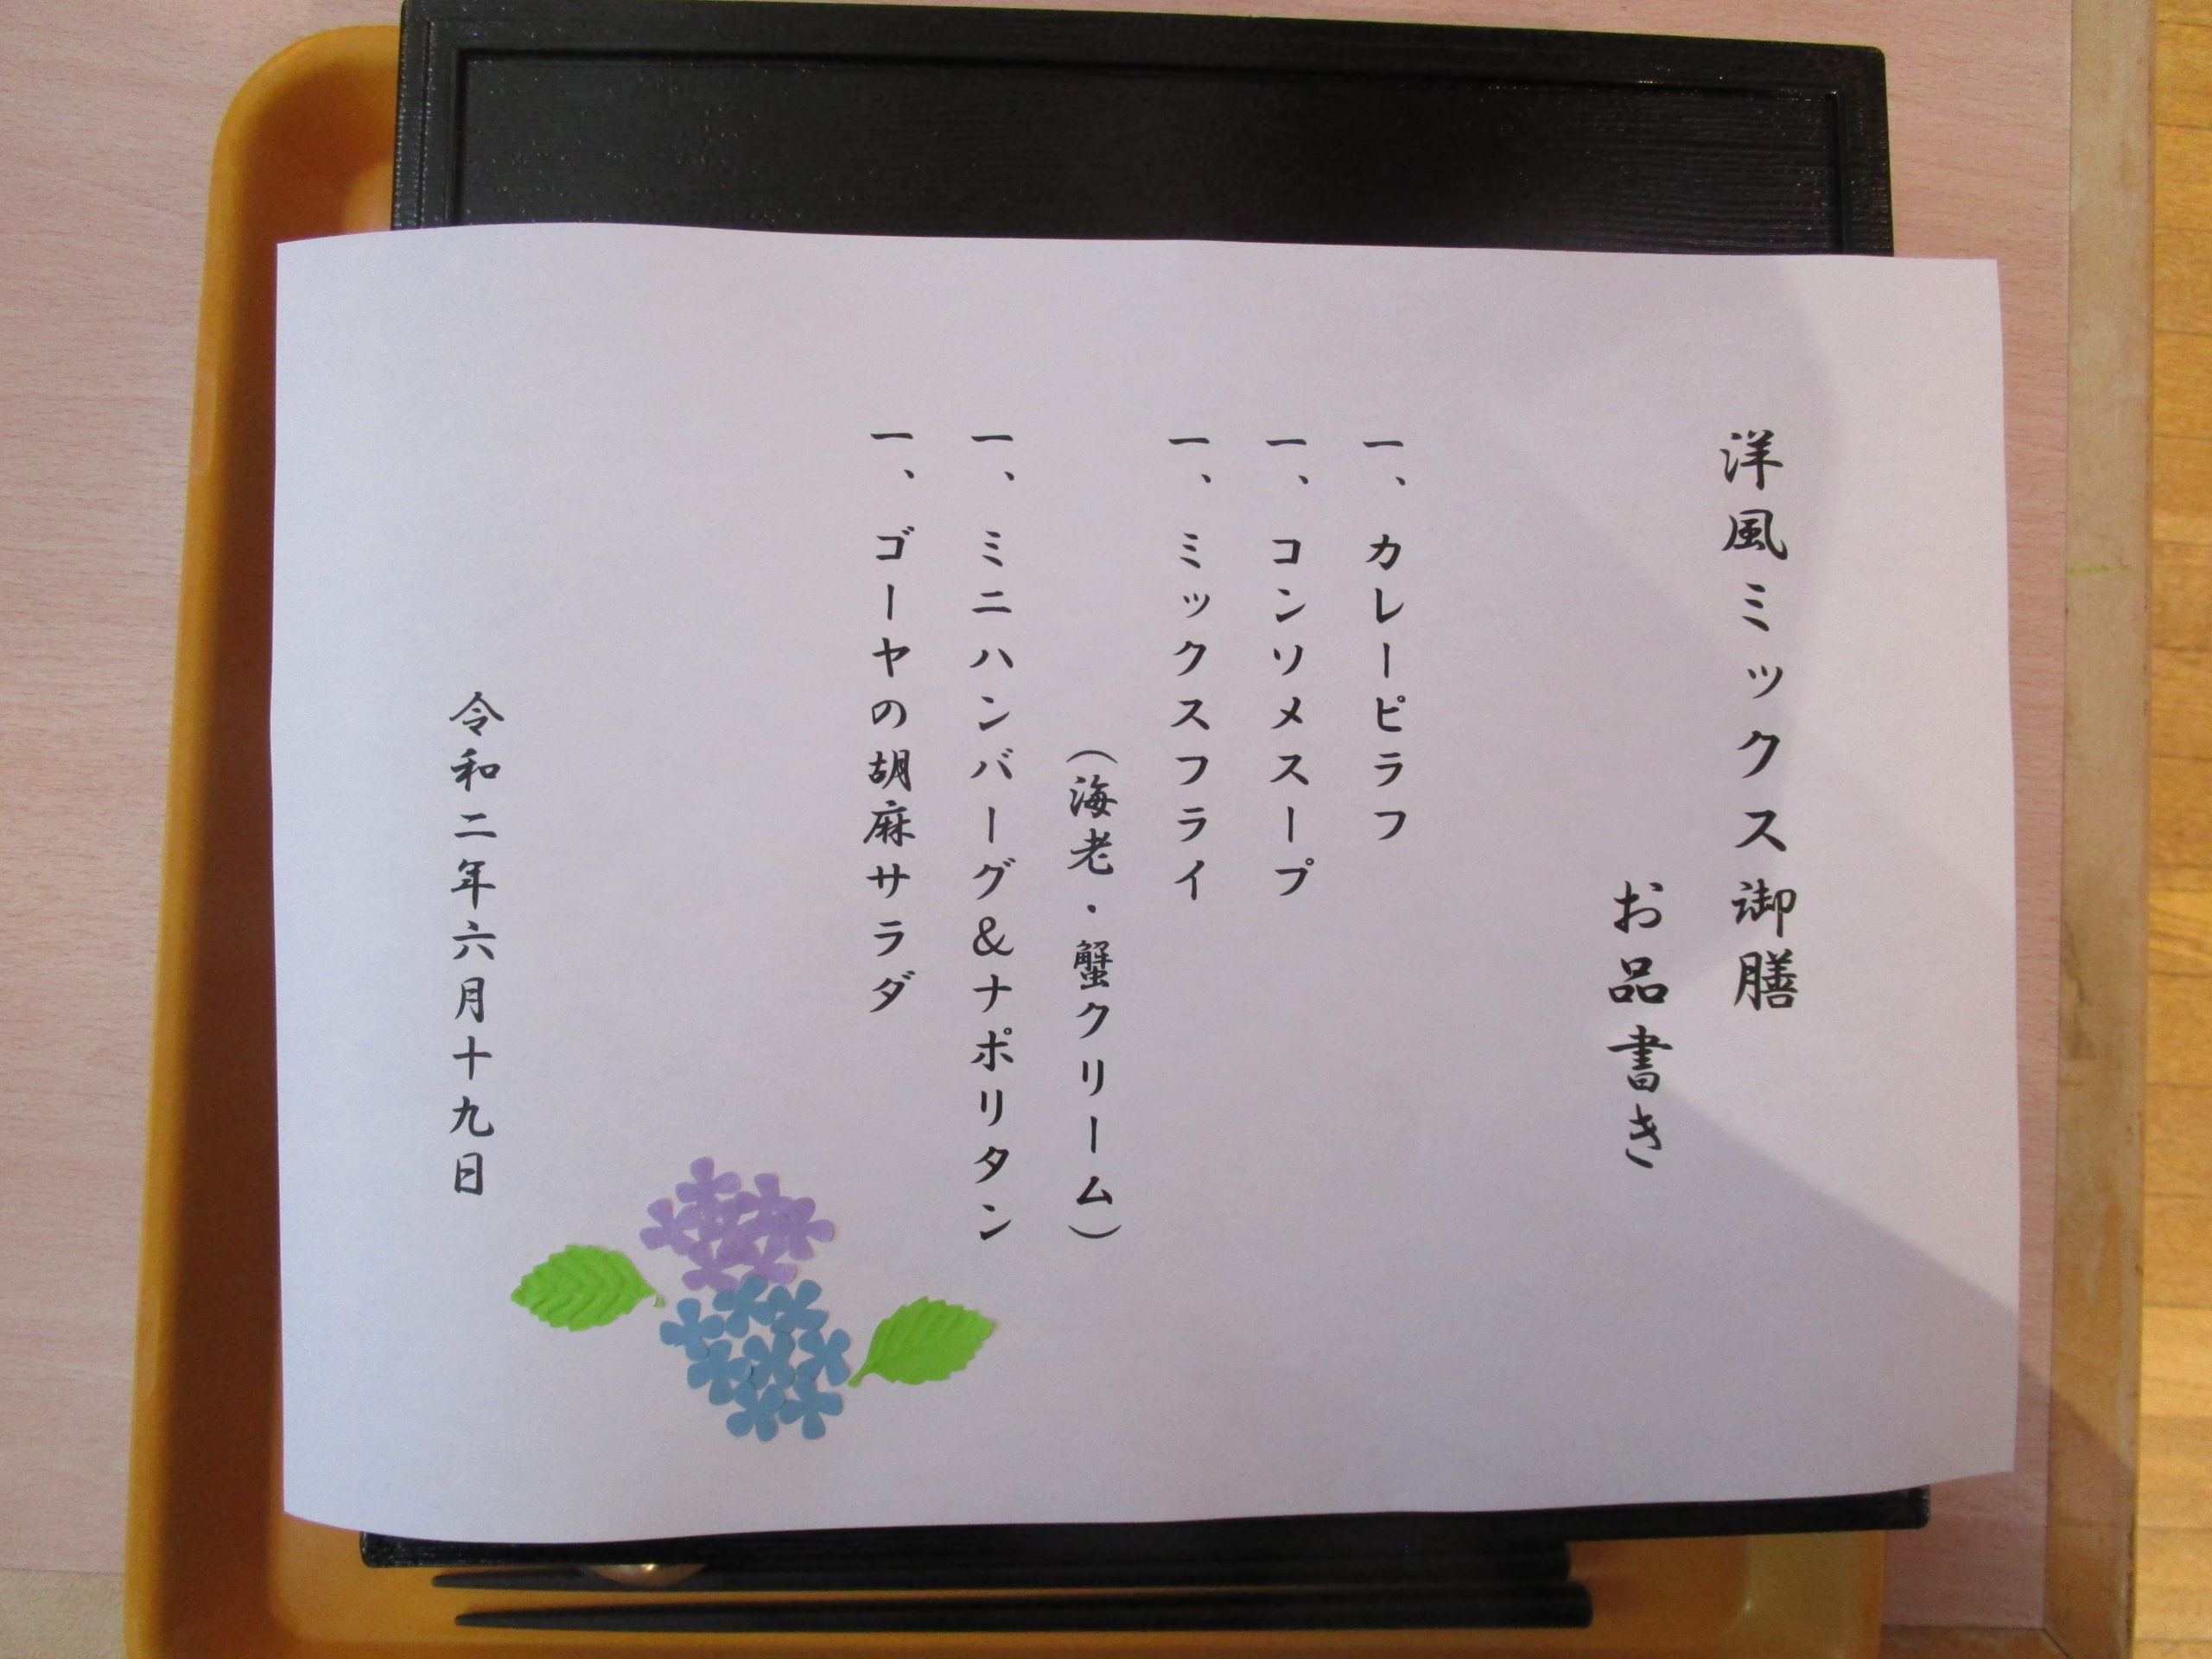 洋風ミックス御膳
お品書き
一、カレーピラフ
一、コンソメスープ
一、ミックスフライ
（海老・蟹クリーム）
一、ミニハンバーグ&ナポリタン
一、ゴーヤの胡麻サラダ
令和二年六月十九日